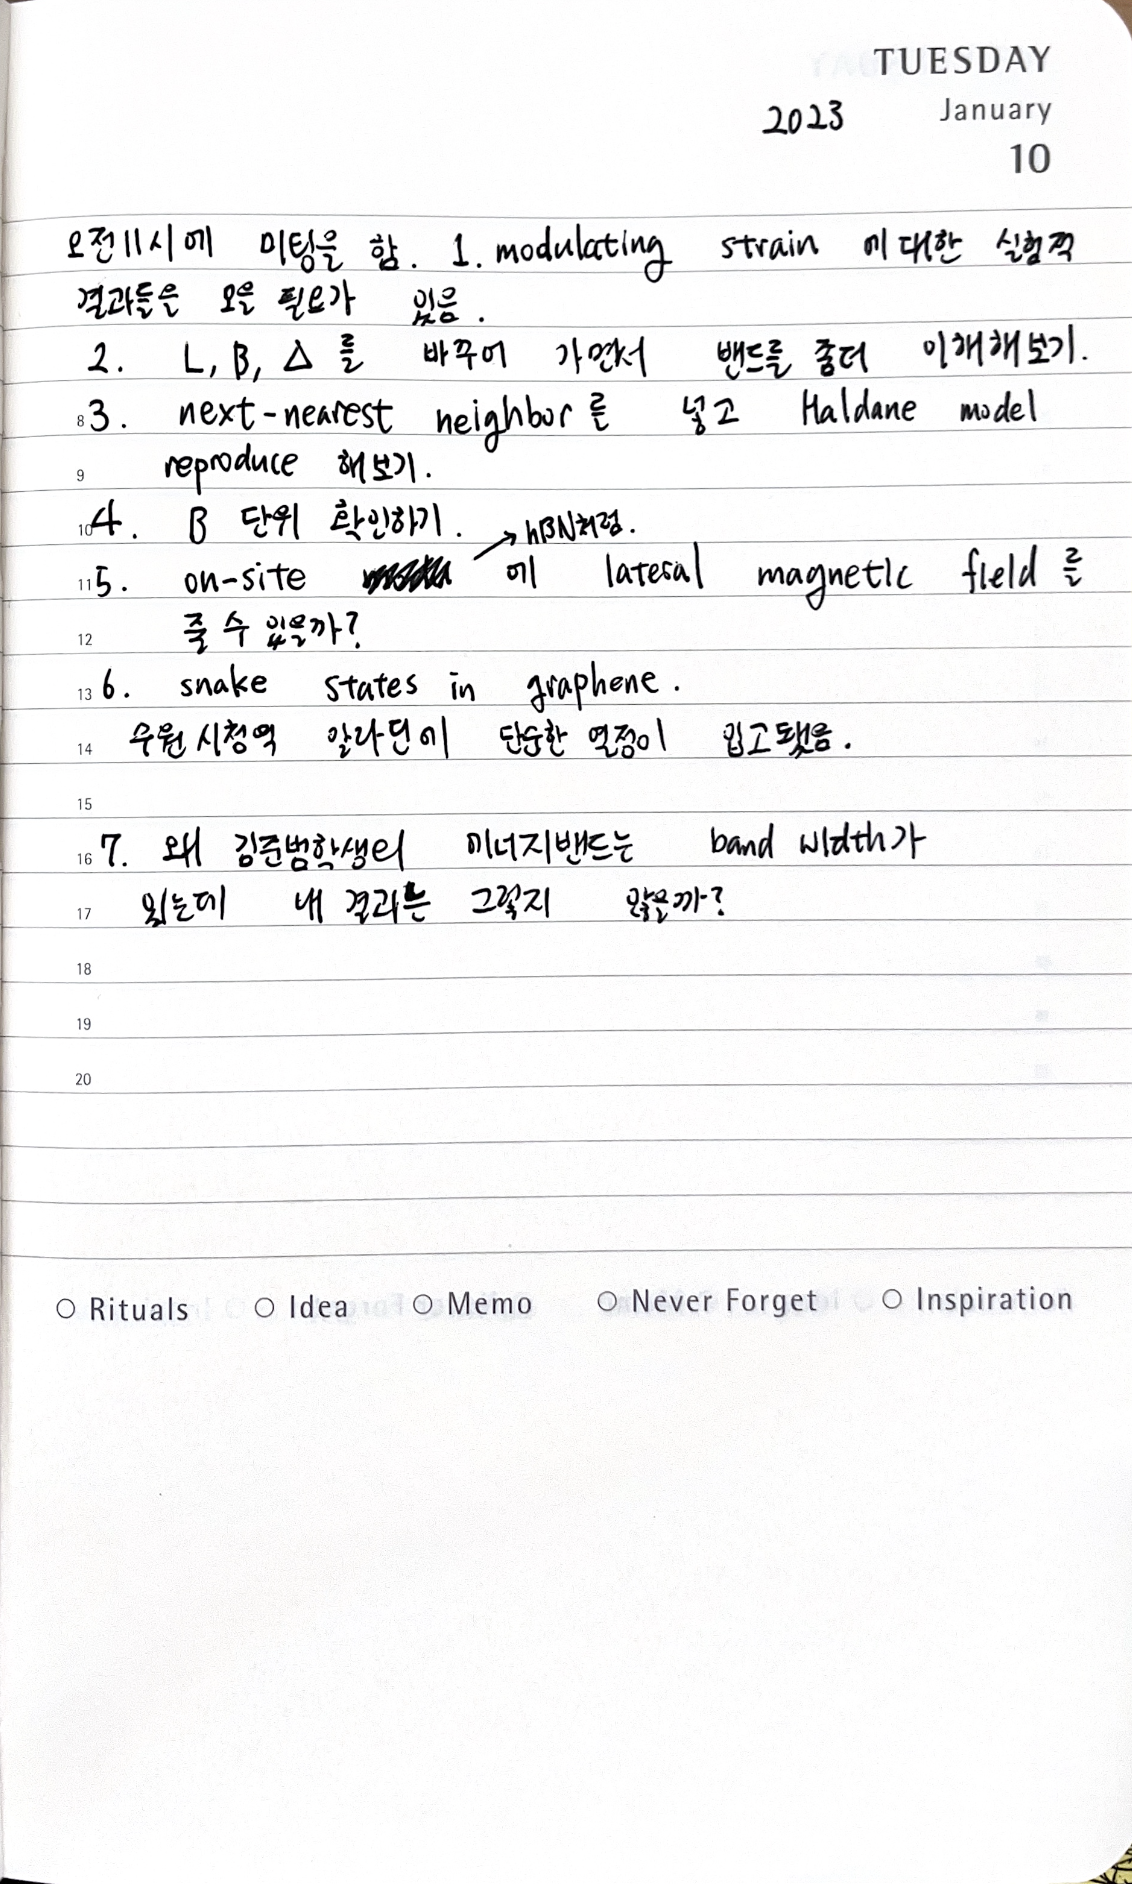 TUESDAY
2023 January
10
오전 11시에 미팅을 함. 1. modulating strain 에 대한 실험적
결과들은 모을 필요가 있음.
2. L, B, Δ 를 바꾸어 가면서 밴드를 좀더 이해해보기.
8 3. next-nearest neighbor를 넣고 Haldane model
9 reproduce 해보기.
10 4. B 단위 확인하기.
→ hBN처럼.
11 5. on-site 에 lateral magnetic field 를
12 줄 수 있을까?
13 6. snake states in graphene.
14 수원시청역 알라딘에 단순한 열정이 입고됐음.
15
16 7. 왜 김준범학생의 에너지밴드는 band width가
17 있는데 내 결과는 그렇지 않은까?
18
19
20
Rituals Idea Memo Never Forget Inspiration